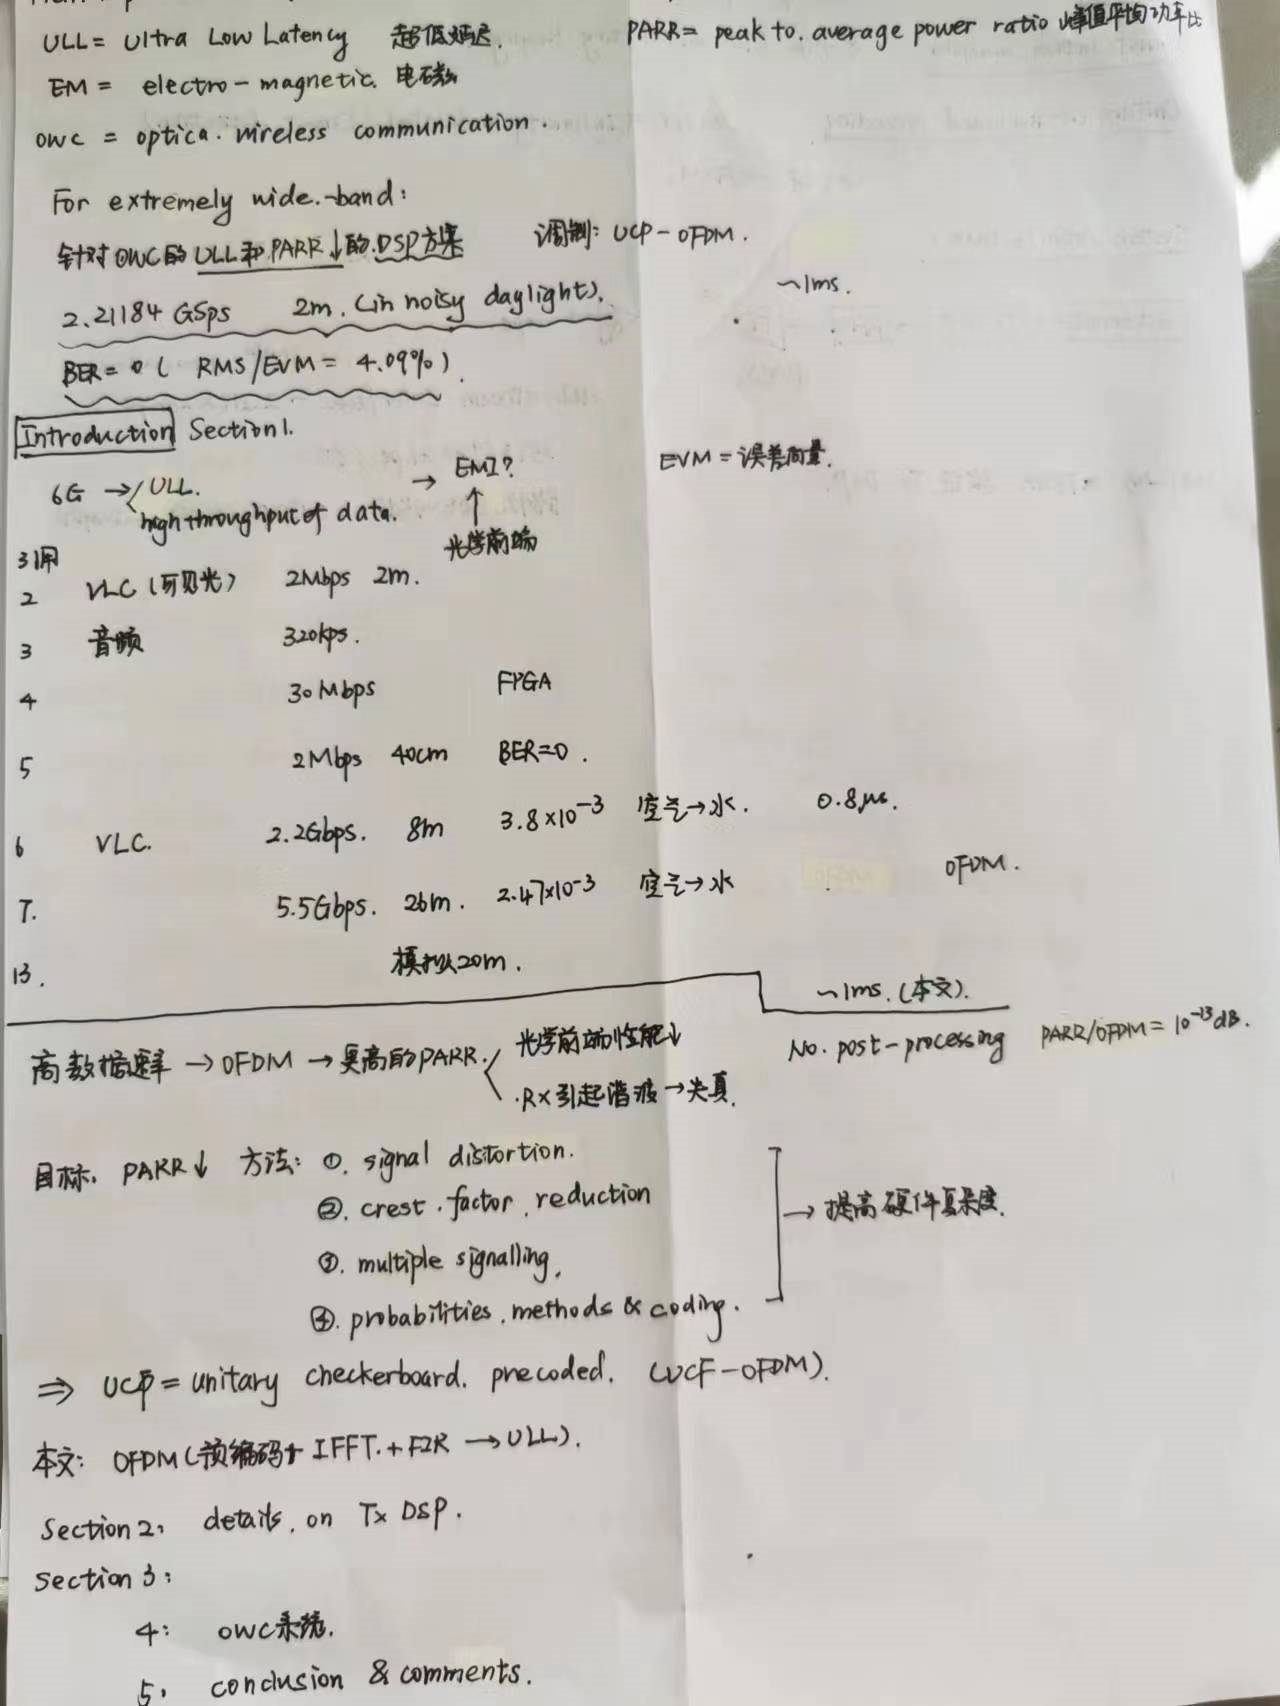 ULL = Ultra Low Latency 超低延迟. PARR = peak to. average power ratio 峰值平均功率比
EM = electro-magnetic. 电磁
OWC = optica. wireless communication.
For extremely wide.-band:
针对OWC的ULL和PARR↓的DSP方案 调制: UCP-OFDM.
2.21184 GSps 2m. (in noisy daylight). ~1ms.
BER = 0 ( RMS/EVM = 4.09%).
Introduction Section 1.
EVM = 误差向量.
6G → ULL. → EMI?
high throughput of data. ↑
光学前端
引用
2 VLC (可见光) 2Mbps 2m.
3 音频 320kps.
4 30Mbps FPGA
5 2Mbps 40cm BER=0.
6 VLC. 2.2Gbps. 8m 3.8×10⁻³ 空气→水. 0.8μs.
7. 5.5Gbps. 26m. 2.47×10⁻³ 空气→水 OFDM.
13. 模拟20m.
~1ms. (本文).
高数据速率 → OFDM → 更高的PARR. 光学前端性能↓ No. post-processing PARR/OFDM = 10⁻¹³dB.
·RX引起谐波→失真.
目标. PARR↓ 方法: ①. signal distortion.
②. crest. factor. reduction → 提高硬件复杂度.
③. multiple signalling.
④. probabilities. methods & coding.
⇒ UCP = unitary checkerboard. precoded. (UCF-OFDM).
本文: OFDM (预编码+ IFFT. + FIR → ULL).
Section 2: details. on Tx DSP.
Section 3:
4: OWC系统.
5. conclusion & comments.